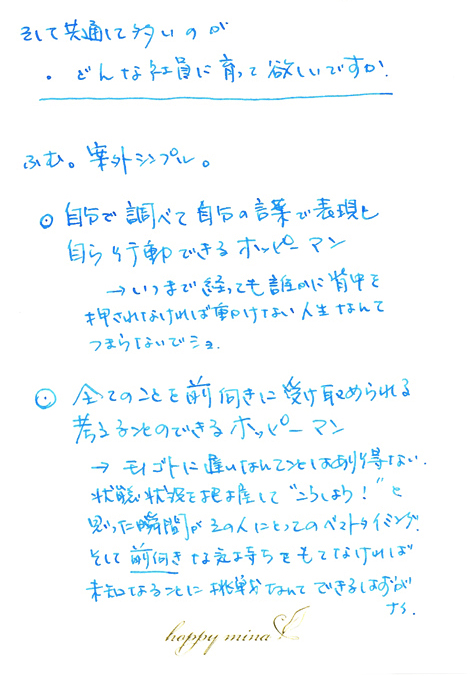 そして共通して多いのが
・どんな社員に育って欲しいですか.
ふむ。案外シンプル。
◎自分で調べて自分の言葉で表現し
自ら行動できるホッピーマン
→いつまで経っても誰かに背中を
押されなければ動けない人生なんて
つまらないでショ.
◎全てのことを前向きに受け取められる
考えることのできるホッピーマン
→モノゴトに遅いなんてことはあり得ない.
状態状況を把握して"こうしよう!"と
思った瞬間がその人にとってのベストタイミング.
そして前向きな気持ちをもてなければ
未知なることに挑戦なんてできるはずが
ナシ.
happy mina